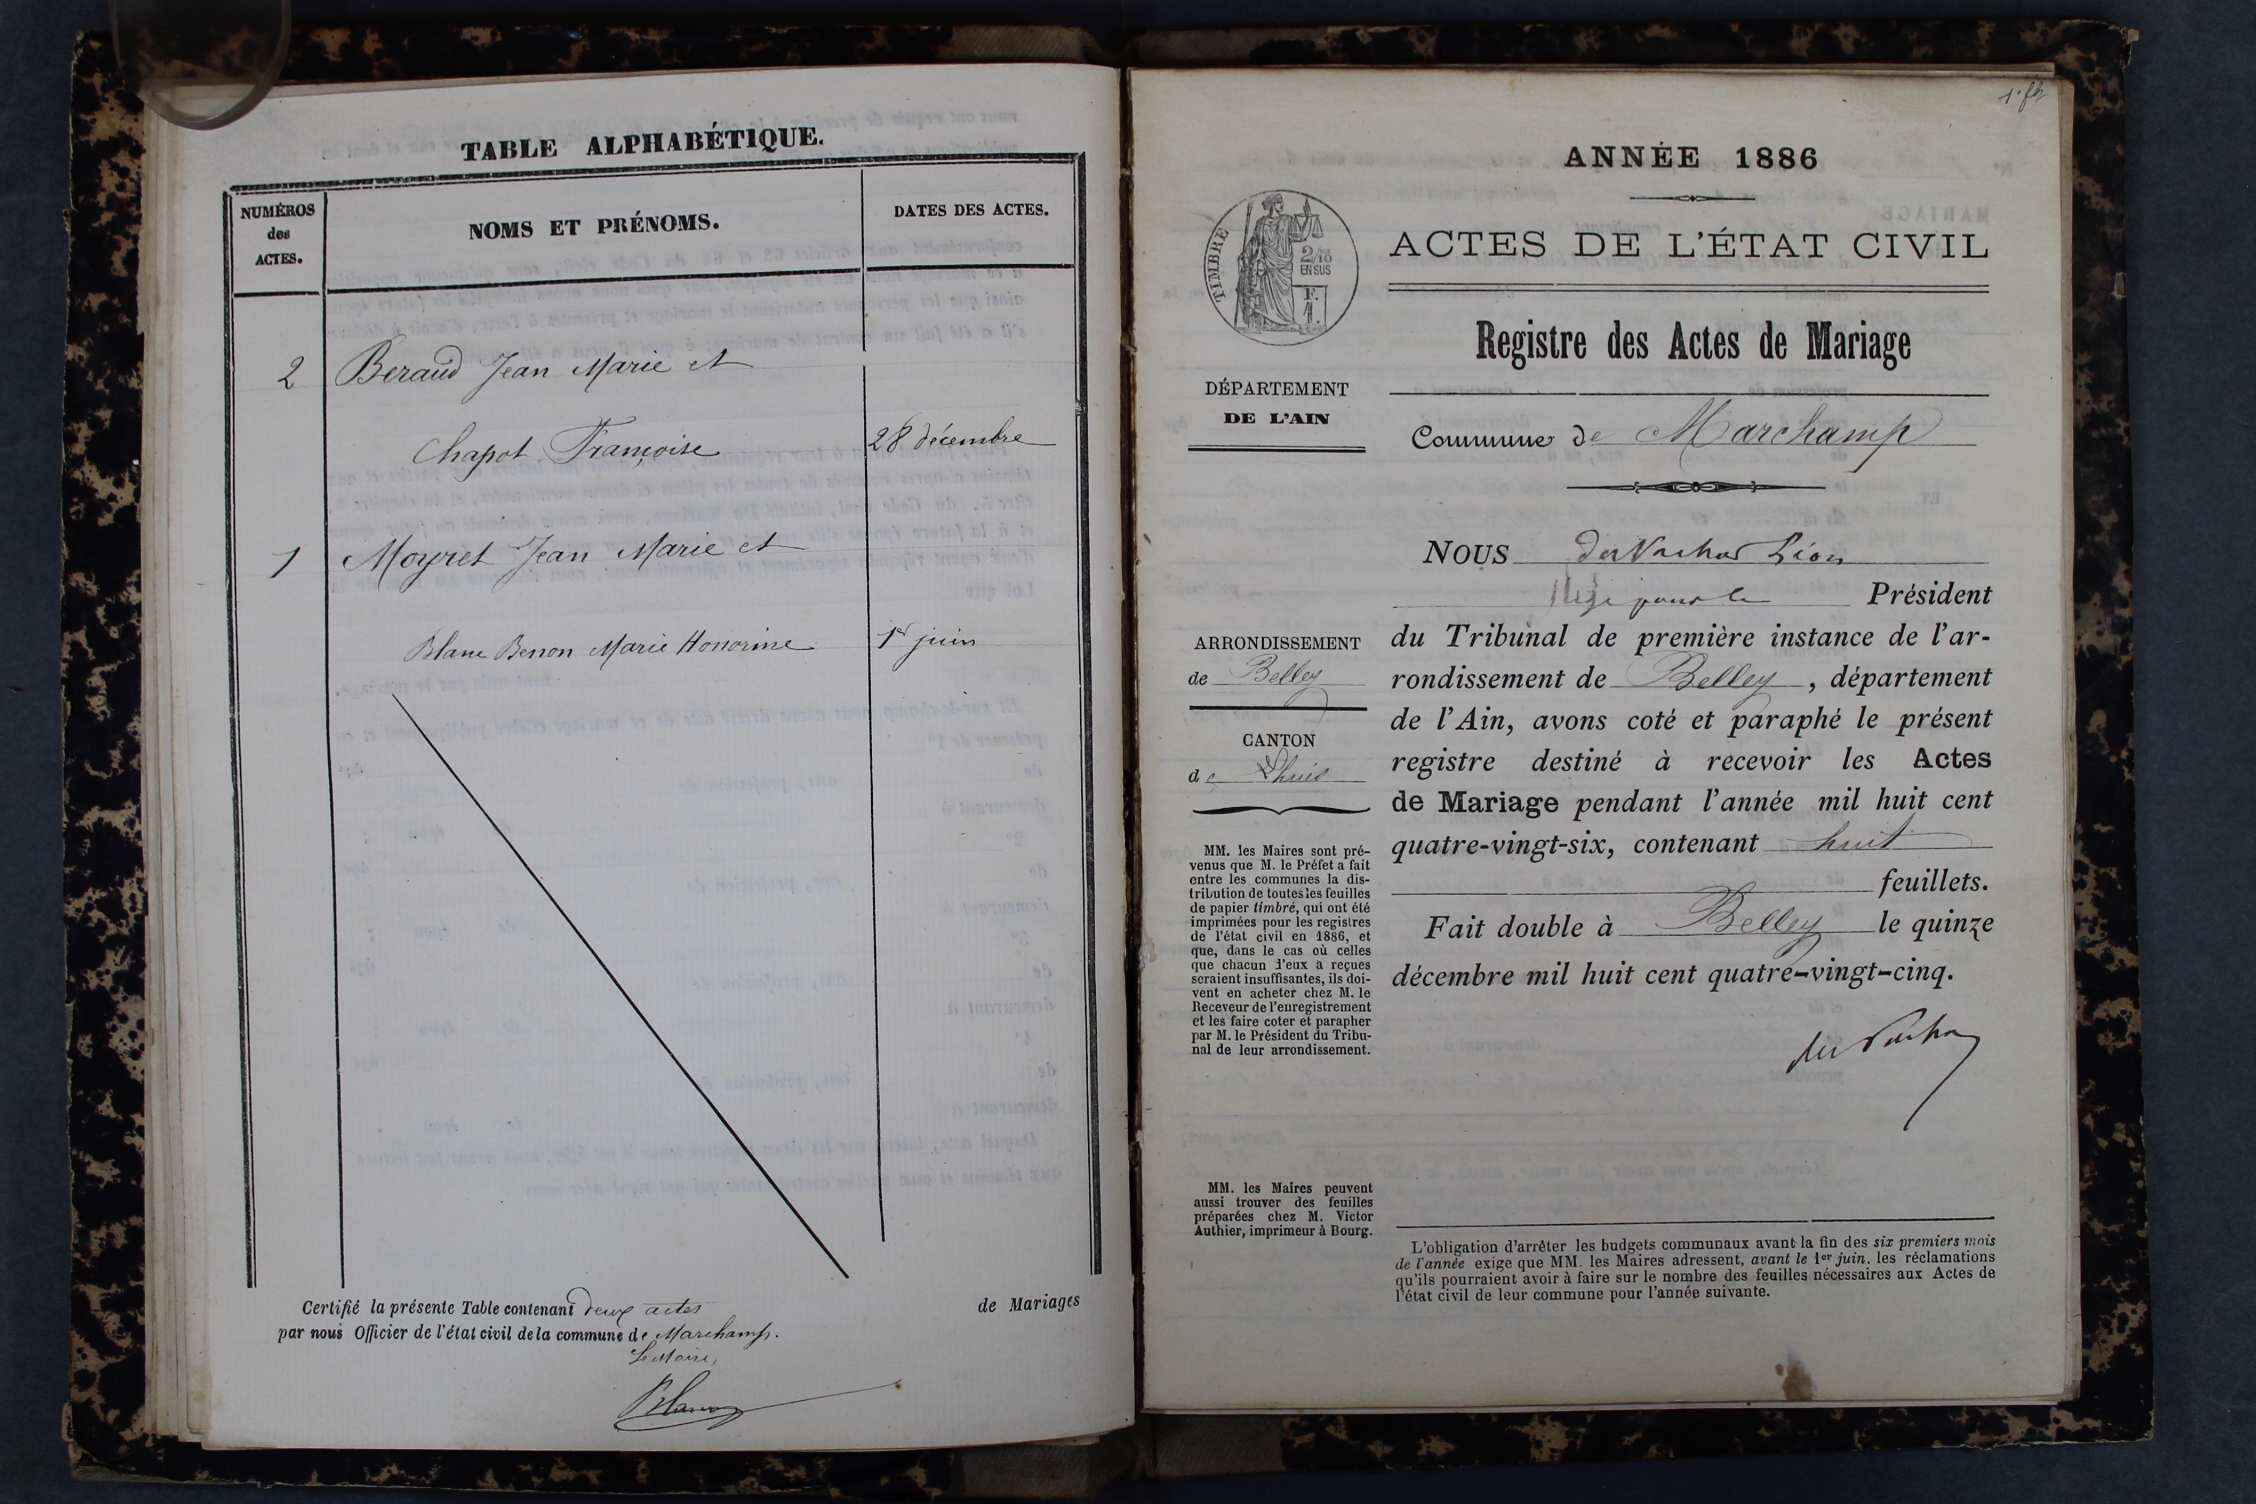 TABLE ALPHABÉTIQUE.
NUMÉROS
des
ACTES.
NOMS ET PRÉNOMS.
DATES DES ACTES.
2 Beraud Jean Marie et
Chapot Françoise 28 décembre
1 Moyret Jean Marie et
Blanc Benon Marie Honorine 1er juin
Certifié la présente Table contenant deux actes de Mariages
par nous Officier de l'état civil de la commune de Marchamp.
Le Maire,
Blanc
ANNÉE 1886
ACTES DE L'ÉTAT CIVIL
TIMBRE
2/10
EN SUS
F.
1.
Registre des Actes de Mariage
DÉPARTEMENT
DE L'AIN
Commune de Marchamp
NOUS Léon
Juge pour le Président
du Tribunal de première instance de l'ar-
rondissement de Belley, département
de l'Ain, avons coté et paraphé le présent
registre destiné à recevoir les Actes
de Mariage pendant l'année mil huit cent
quatre-vingt-six, contenant huit
feuillets.
Fait double à Belley le quinze
décembre mil huit cent quatre-vingt-cinq.
ARRONDISSEMENT
de Belley
CANTON
de Lhuis
MM. les Maires sont pré-
venus que M. le Préfet a fait
entre les communes la dis-
tribution de toutes les feuilles
de papier timbré, qui ont été
imprimées pour les registres
de l'état civil en 1886, et
que, dans le cas où celles
que chacun d'eux a reçues
seraient insuffisantes, ils doi-
vent en acheter chez M. le
Receveur de l'enregistrement
et les faire coter et parapher
par M. le Président du Tribu-
nal de leur arrondissement.
MM. les Maires peuvent
aussi trouver des feuilles
préparées chez M. Victor
Authier, imprimeur à Bourg.
L'obligation d'arrêter les budgets communaux avant la fin des six premiers mois
de l'année exige que MM. les Maires adressent, avant le 1er juin, les réclamations
qu'ils pourraient avoir à faire sur le nombre des feuilles nécessaires aux Actes de
l'état civil de leur commune pour l'année suivante.